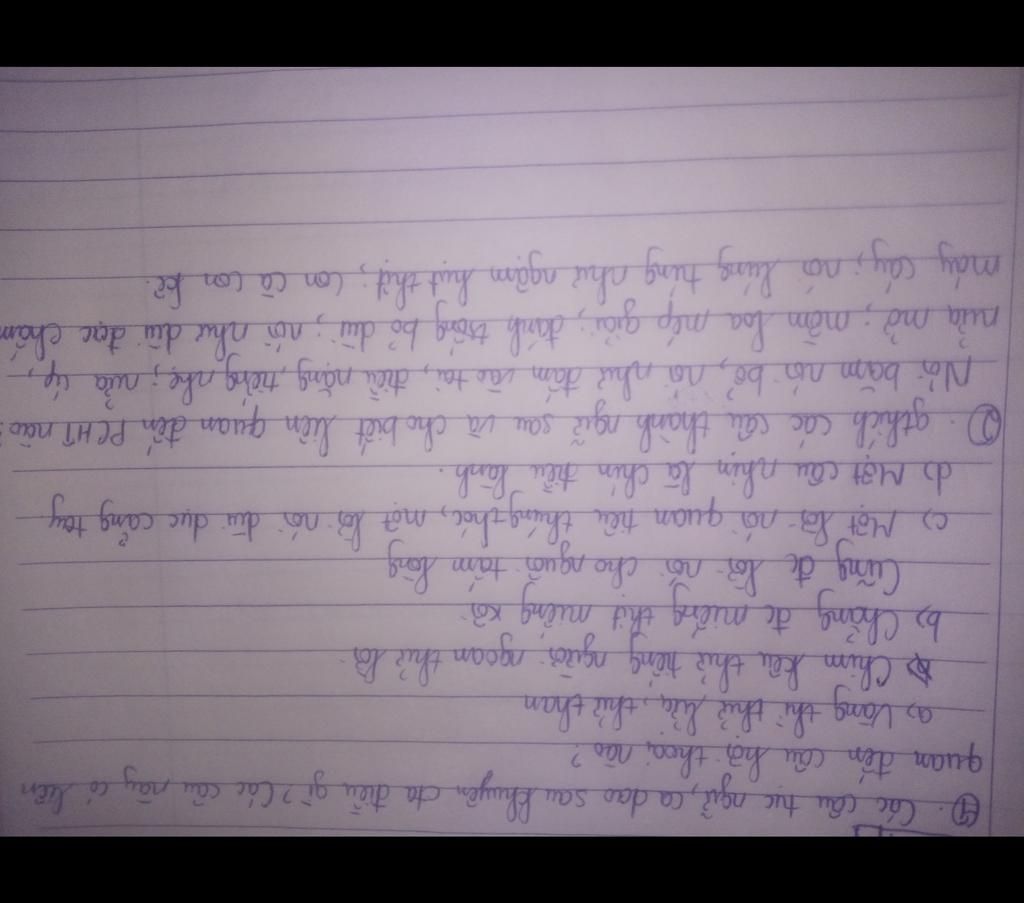 ①. Các câu tục ngữ, ca dao sau khuyên cta điều gì? Các câu này có liên
quan đến câu hội thoại nào?
a) Vàng thì thử lửa, thử than
Chim kêu thử tiếng người ngoan thử lời
b) Chẳng đc miếng thịt miếng xôi
Cũng đc lời nói cho nguôi tấm lòng
c) Một lời nói quan tiền thúng thóc, một lời nói dùi đục cẳng tay
d) Một câu nhịn là chín điều lành.
②. gthích các câu thành ngữ sau và cho biết liên quan đến PCHT nào?
Nói băm nói bổ, nói như đấm vào tai, điều nặng tiếng nhẹ; nửa úp,
nửa mở; mồm loa mép giải; đánh trống bỏ dùi; nói như dùi đục chấm
máy cáy; nói lúng túng như ngậm hụt thịt; con cà con kê.